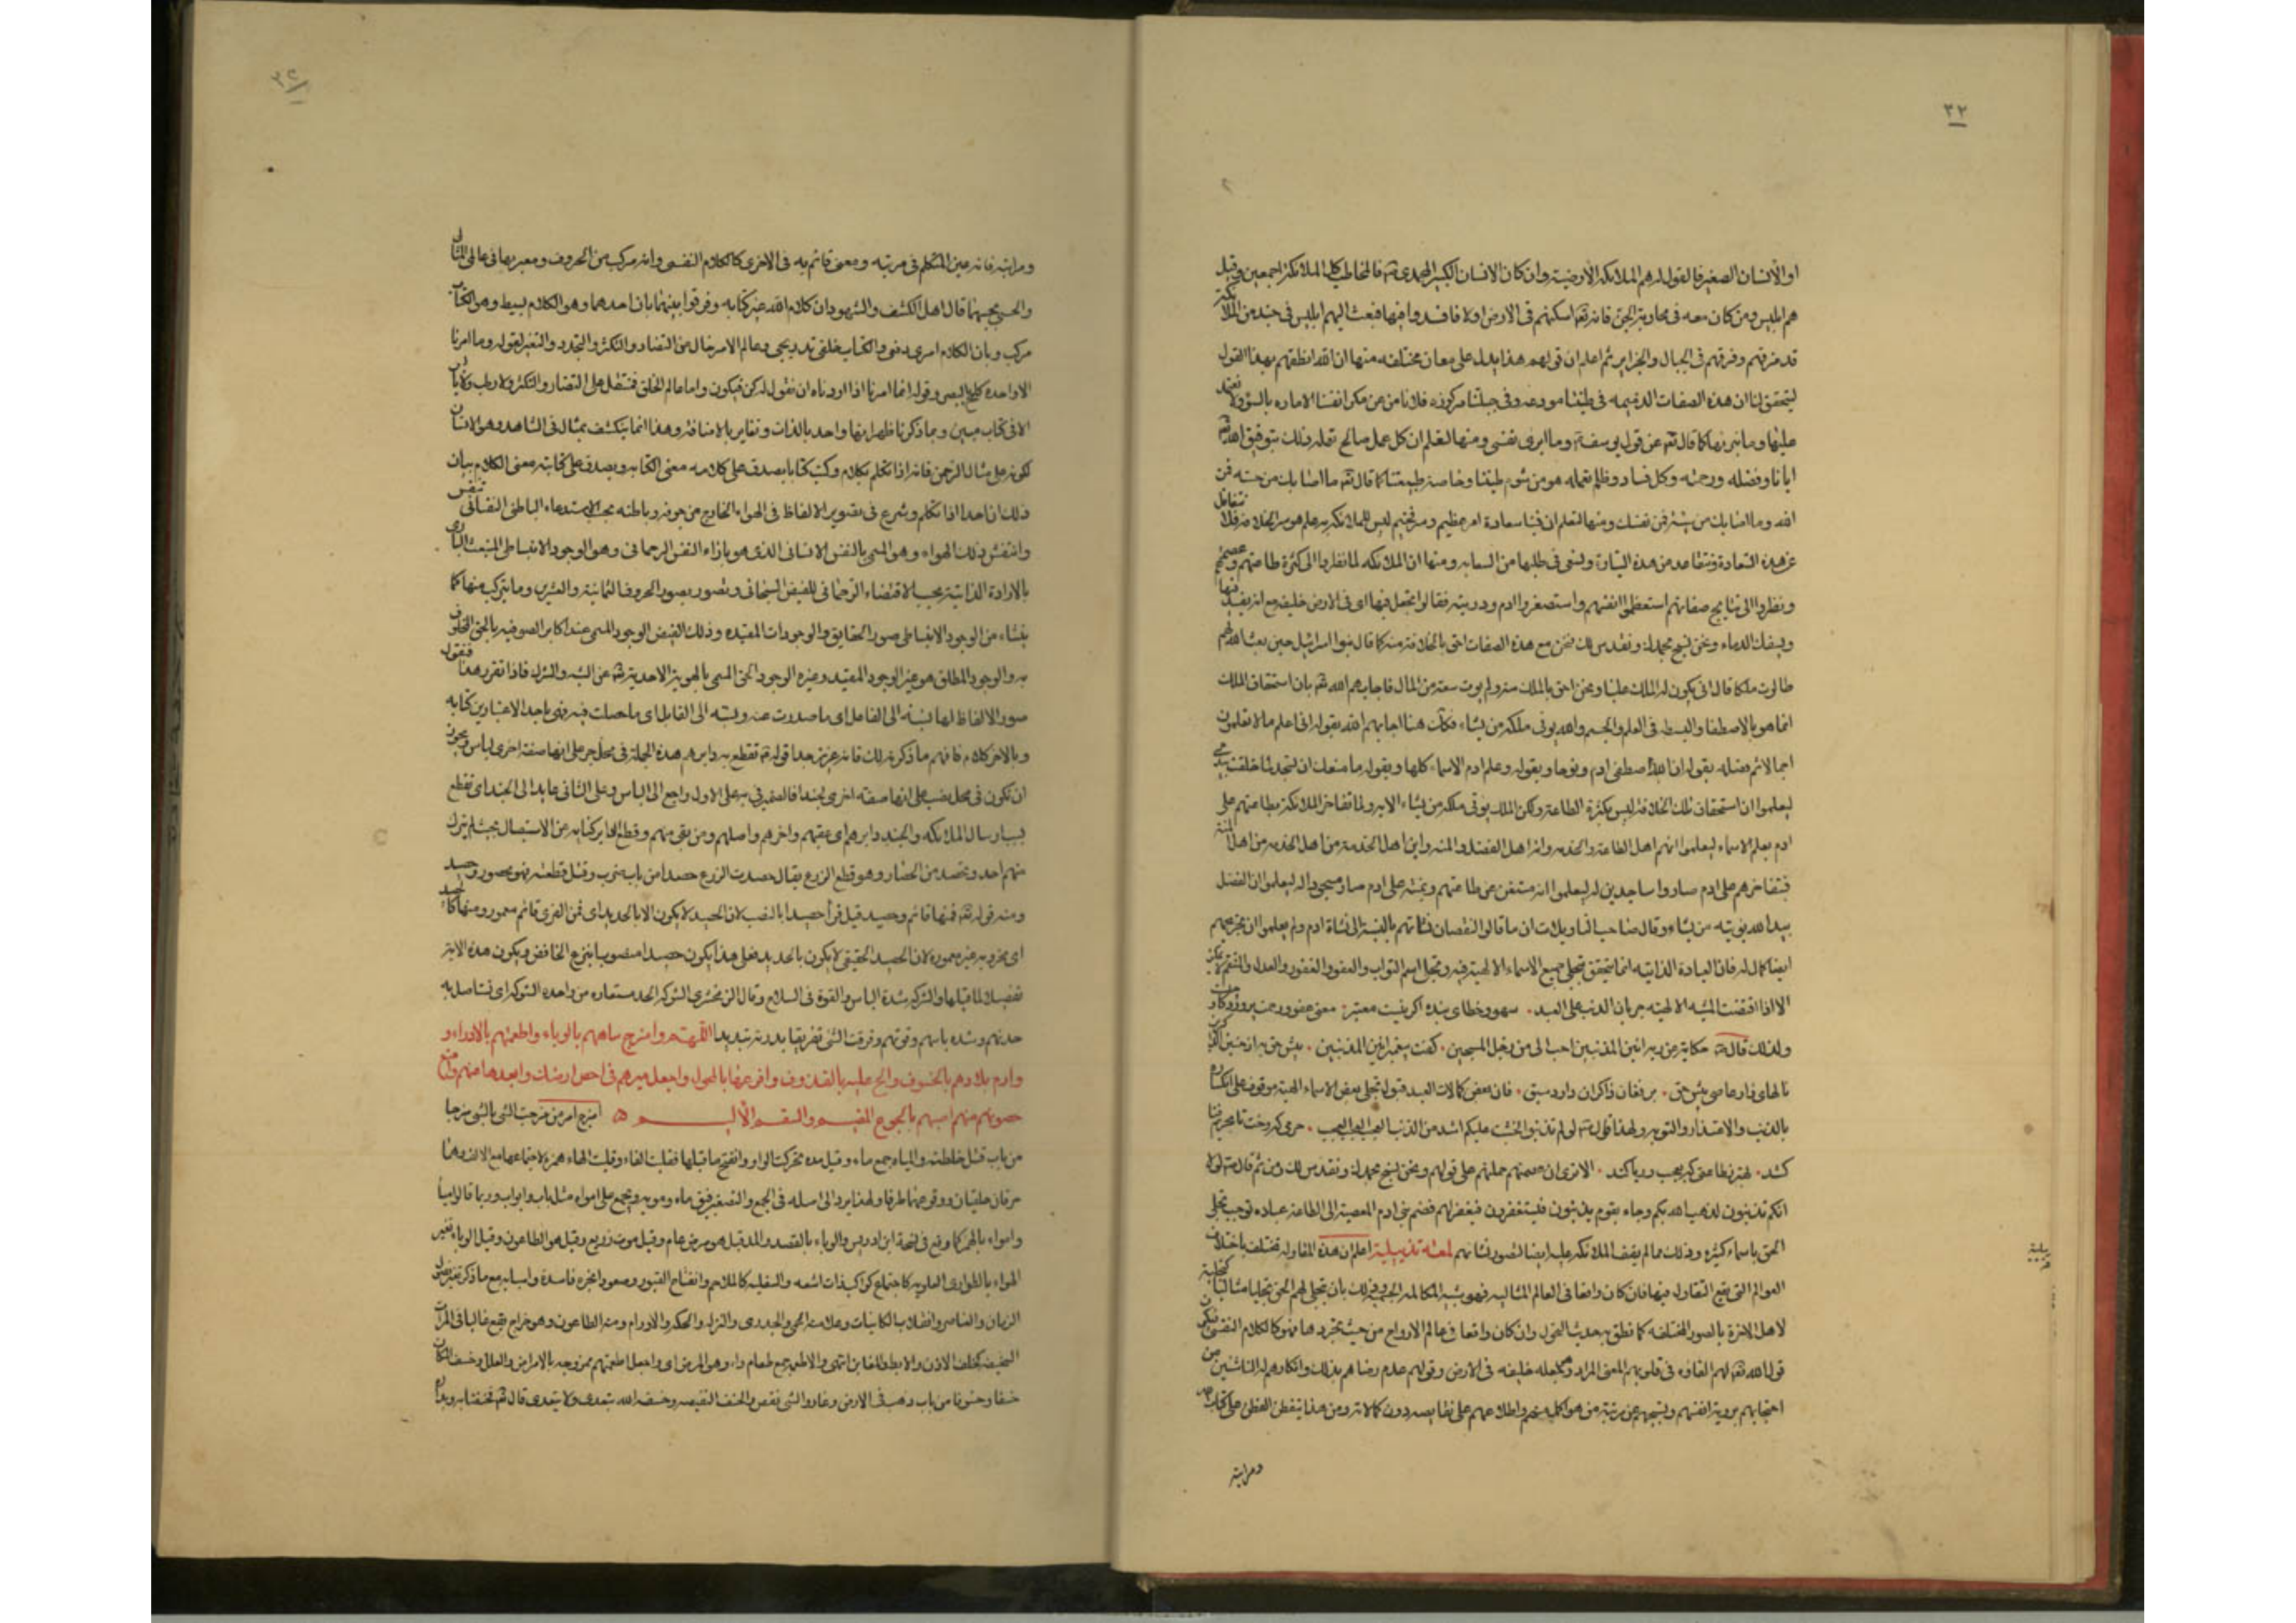 ٣٢
او الانسان الصغير فالمقول لهم الملائكة الارضية وان كان الانسان الكبير فالمخاطب كل الملائكة اجمعين وقيل
هم ابليس ومن كان معه في محاربة الجن فانه تعالى اسكنهم في الارض اولا فافسدوا فيها فبعث اليهم ابليس في جند من الملائكة
قد مزقهم وفرقهم في الجبال والجزاير ثم اعلم ان قولهم هذا يدل على معان مختلفة منها ان الله انطقهم بهذا القول
ليتحقق لنا ان هذه الصفات الذميمة في طينتنا مودعة وفي جبلتنا مركوزه فلا نامن من مكر انفسنا الاماره بالسوء ولا نعتمد
عليها وما نبرئها كما قال تعالى عن قول يوسف وما ابرئ نفسي ومنها لنعلم ان كل عمل صالح نعمله ذلك بتوفيق الله تعالى
ايانا وفضله ورحمته وكل فساد وظلم نعمله هو من شوم طينتنا وخاصية طبيعتنا كما قال تعالى ما اصابك من حسنة فمن
الله وما اصابك من سيئة فمن نفسك ومنها لنعلم ان فينا سعادة امر عظيم ليس للملائكة به علم هو سر الخلافة فلا نتغافل
عن هذه السعادة ونتقاعد من هذه السيادة ونسعى في طلبها ومنها ان الملائكة لما نظروا الى كثرة طاعتهم وعصمتهم
ونظروا الى نتايج صفاتهم استعظموا انفسهم واستصغروا ادم وذريته فقالوا اتجعل فيها اى في الارض خليفة مع انه يفسد فيها
ويسفك الدماء ونحن نسبح بحمدك ونقدس لك فنحن مع هذه الصفات احق بالخلافة منه كما قال بنوا اسرائيل حين بعث الله لهم
طالوت ملكا قالوا انى يكون له الملك علينا ونحن احق بالملك منه ولم يوت سعة من المال فاجابهم الله تعالى بان استحقاق الملك
انما هو بالاصطفا والبسطة في العلم والجسم والله يوتى ملكه من يشاء فكذلك هنا اجابهم الله بقوله انى اعلم ما لا تعلمون
اجمالا ثم فضله بقوله ان الله اصطفى ادم ونوحا وبقوله وعلم ادم الاسماء كلها وبقوله ما منعك ان تسجد لما خلقت بيدي
ليعلموا ان استحقاق تلك الخلافة ليس بكثرة الطاعة ولكن الملك يوتى ملكه من يشاء الاية ولما تفاخر الملائكة بطاعتهم على
ادم بعلم الاسماء ليعلموا انهم اهل الطاعة والخدمة وانه اهل الفضل والمنة واين اهل الخدمة من اهل المنة
فبتفاخرهم على ادم صاروا ساجدين له ليعلموا انه مستغن عن طاعتهم وبمنته على ادم صار مسجودا له ليعلموا ان الفضل
بيد الله يوتيه من يشاء وقال صاحب التاويلات ان ما قالوا لنقصان نشاتهم بالنسبة الى نشاة ادم ولم يعلموا ان
ايضا كمال له فان العبادة الذاتية انما تتحقق بتجلي جميع الاسماء الالهية فيه وتجلي اسم التواب والعفو والغفور والعدل والمنتقم لا يمكن
الا اذا اقتضت المشية الالهية جريان الذنب على العبد . سهو وخطاى بنده اكر نيست معتبر . معنى عفو ورحمت پروردكار چيست
ولذلك قال حكاية عن ربه انين المذنبين احب الى من زجل المسبحين . كفت پيغمبر انين المذنبين . پيش حق
نالهاى زار عاصى پيش حق . بر فغان ذاكران دارد سبق . فان بعض كمالات العبد قبول تجلي بعض الاسماء الهية موقوف على انكساره
بالذنب والاعتذار والتوبه ولهذا قال لو لم تذنبوا لخشيت عليكم اشد من الذنب العجب العجب العجب .
كشد . بهتر زطاعتى كه بعجب وريا كند . الا ترى ان عصمتهم حملتهم على قولهم ونحن نسبح بحمدك ونقدس لك ومن ثم قال لولا
انكم تذنبون لذهب الله بكم وجاء بقوم يذنبون فيستغفرون فيغفر لهم فضم بنى ادم المعصية الى الطاعة عبادة توجب تجلي
الحق باسماء كثيرة وذلك مما لم يقف الملائكة عليه ايضا لقصور نشاتهم لمعة تذييلية اعلم ان هذه المقاولة تختلف باختلاف
العوالم التي يقع التقاول فيها فان كان واقعا في العالم المثالي فهو شبيه المكالمة الحسية وذلك بان يتجلى لهم الحق تجليا مثاليا كتجليه
لاهل الاخرة بالصور المختلفة كما نطق به حديث التحول وان كان واقعا في عالم الارواح من حيث تجردها فهو كالكلام النفسى فيكون
قول الله تعالى لهم القاءه في قلوبهم المعنى المراد وهو جعله خليفة في الارض وقولهم عدم رضاهم بذلك وانكارهم له الناشئين من
احتجابهم برؤية انفسهم وتسبيحهم عن مرتبة من هو اكمل منهم واطلاعهم على نقايصه دون كمالاته ومن هذا يتفطن الفطن على كلام الله
ومراتبه
ومراتبه فانه عين المتكلم في مرتبه ومعنى قائم به في الاخرى كالكلام النفسى وانه مركب من الحروف ومعبر بها في عالمي المثالى
والحسى بحسبهما قال اهل الكشف والشهود ان كلام الله غير كتابه وفرقوا بينهما بان احدهما وهو الكلام بسيط وهو الكتاب
مركب وبان الكلام امرى دفعى والكتاب خلقى تدريجى وعالم الامر خال من التضاد والتكثر والتجدد والتغير لقوله وما امرنا
الا واحدة كلمح البصر وقوله انما امرنا اذا اردناه ان نقول له كن فيكون واما عالم الخلق فمشتمل على التضاد والتكثر ولا رطب ولا يابس
الا في كتاب مبين وبما ذكرنا ظهر انهما واحد بالذات وتغاير بالاضافة وهذا انما ينكشف بمثال في الشاهد وهو الانسان
لكونه على مثال الرحمن فانه اذا تكلم بكلام وكتب كتابا يصدق على كلامه معنى الكتابة ويصدق على كتابته معنى الكلام بيان
ذلك ان احدا اذا تكلم وشرع في تصوير الالفاظ في الهواء الخارج من جوفه وباطنه بحسب الاستدعاء الباطنى النفسانى تنفس
وانتقش ذلك الهواء وهو المسمى بالنفس الانسانى الذى هو بازاء النفس الرحمانى وهو الوجود الانبساطى المنبعث
بالارادة الذاتية بحسب الاقتضاء الرحمانى للفيض السبحانى وتصور بصور الحروف الثمانية والعشرين وما يتركب منها كما
ينشاء من الوجود الانبساطى صور الحقايق والوجودات المقيده وذلك الفيض الوجود المسمى عند اكابر الصوفيه بالحق المخلوق
به والوجود المطلق هو عين الوجود المقيد وغيره الوجود الحق المسمى بالهوية الاحدية تعالى عن الشبه والشرك فاذا تقرر هذا فنقول
صور الالفاظ لها نسبة الى الفاعل اى ما صدرت عنه ونسبة الى القابل اى ما حصلت فيه فهى باحد الاعتبارين كتابة
وبالاخر كلام فافهم ما ذكرته لك فانه عزيز جدا قوله تقطع به دابرهم هذه الجملة في محل جر على انها صفة اخرى لباس ويجوز
ان تكون في محل نصب على انها صفة اخرى لجندا فالضمير في به على الاول راجع الى الباس وعلى الثانى عايد الى الجند اى تقطع
بسبب ارسال الملائكة والجند دابرهم اى عقبهم واخرهم واصلهم ومن بقى منهم وقطع الدابر كناية عن الاستيصال بحيث لم يترك
منهم احد وتحصد من الحصاد وهو قطع الزرع يقال حصدت الزرع حصدا من باب ضرب وقتل قطعته فهو محصود وحصيد
ومنه قوله تعالى فمنها قائم وحصيد قيل قرأ حصيدا بالنصب لان الحصيد لا يكون الا بالحديد اى فمن القرى قائم معمور ومنها كالحصيد
اى مخروبه غير معموره لان الحصيد الحقيقى لا يكون بالحديد فعلى هذا يكون حصيدا منصوبا بنزع الخافض ويكون هذه الاية
تفصيلا لما قبلها والشوكة شدة الباس والقوة في السلاح وقال الزمخشرى الشوكة الحد مستعاره من واحدة الشوك اى تستاصل به
حدتهم وشدة باسهم وقوتهم وفرقت الشئ تفريقا بددته تبديدا اللهم وامزج مياههم بالوباء واطعمتهم بالادواء و
وارم بلادهم بالخسوف والح عليها بالقذوف وافرعها بالمحول واجعل ميرهم في احص ارضك وابعدها عنهم وامنع
حصونها منهم اصبهم بالجوع المقيم والسقم الاليم ه امزج امر من مزجت الشئ بالشئ مزجا
من باب قتل خلطته والمياه جمع ماء وقيل موه تحركت الواو وانفتح ما قبلها فقلبت الفا وقلبت الهاء همزة لاجتماعها مع الالف وهما
حرفان حلقيان ووقوعهما طرفا ولهذا يرد الى اصله في الجمع والتصغير فيقال مياه ومويه ويجمع على امواه مثل باب وابواب وربما قالوا
وامواء بالهمز كما وقع في نسخة ابن ادريس والوباء بالقصر والمد قيل هو مرض عام وقيل موت ذريع وقيل هو الطاعون وقيل الوباء تغير
الهواء بالطوارى العلوية كاجتماع كواكب ذات اشعة والسفلية كالملاحم وانفتاح القبور وصعود ابخرة فاسدة واسبابه مع ما ذكر تغير فصول
الزمان والعناصر وانقلاب الكاينات وعلامته الحمى والجدرى والنزلة والحكة والاورام ومنه الطاعون وهو خراج يقع غالبا في المواضع
السخيفة كخلف الاذن والابط والمغابن انتهى والاطعمة جمع طعام داء وهو المرض اى واجعل اطعمتهم ممزوجه بالامراض والعلل وخسف المكان
خسفا وخسوفا من باب ذهب في الارض وغار والشئ نقص والخسف النقيصة وخسف الله يتعدى ولا يتعدى قال تعالى فخسفنا به وبداره